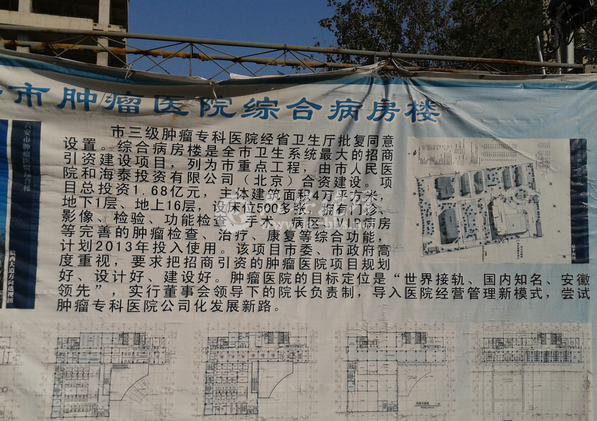 市肿瘤医院综合病房楼
市三级肿瘤专科医院经省卫生厅批复同意
设置。综合病房楼是全市卫生系统最大的招商
引资建设项目，列为市重点工程，由市人民医
院和海泰投资有限公司（北京）合资建设。项
目总投资1.68亿元，主体建筑面积4万平方米，
地下1层、地上16层，设床位500多张，拥有门诊、
影像、检验、功能检查、手术、病区、
等完善的肿瘤检查、治疗、康复等综合功能，
计划2013年投入使用。该项目市委、市政府高
度重视，要求把招商引资的肿瘤医院项目规划
好、设计好、建设好。肿瘤医院的目标定位是“世界接轨、国内知名、安徽
领先”，实行董事会领导下的院长负责制，导入医院经营管理新模式，尝试
肿瘤专科医院公司化发展新路。